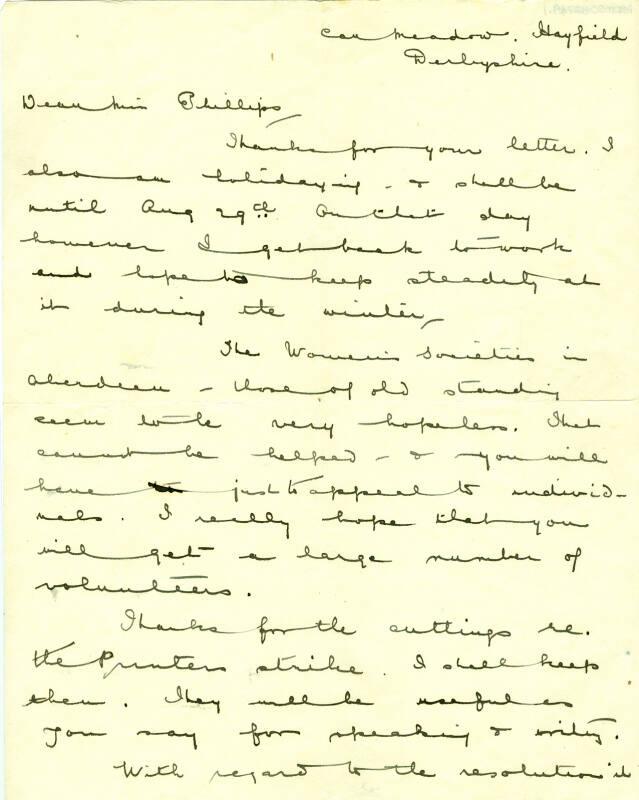 Car Meadow. Hayfield
Derbyshire.
Dear Miss Phillips,
Thanks for your letter. I
also am holidaying - & shall be
until Aug 29th. On that day
however I get back to work
and hope to keep steadily at
it during the winter,
The Women's Societies in
Aberdeen - those of old standing
seem to be very hopeless. That
cannot be helped - & you will
have just to appeal to individ-
uals. I really hope that you
will get a large number of
volunteers.
Thanks for the cuttings re.
the Printers strike. I shall keep
them. They will be useful as
you say for speaking & writing.
With regard to the resolution it